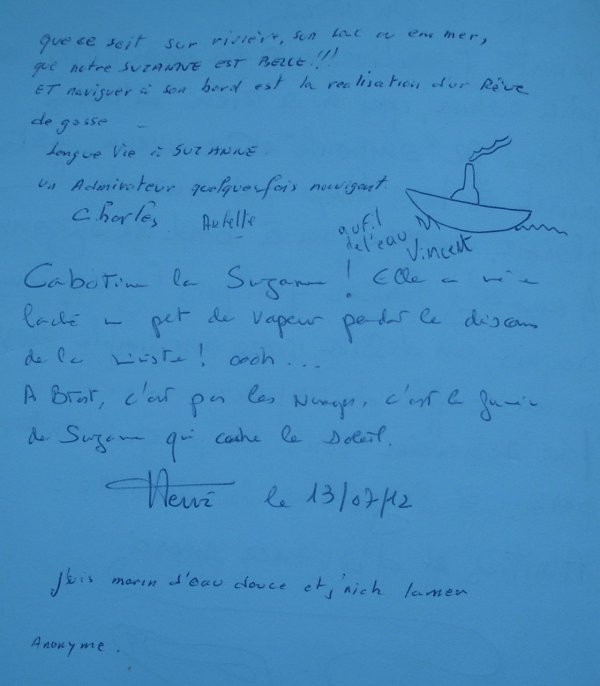 que ce soit sur rivière, sur lac ou en mer,
que notre SUZANNE EST BELLE!!!
ET naviguer à son bord est la realisation d'un Rêve
de gosse
Longue Vie à SUZANNE.
un Admirateur quelquesfois navigant.
Charles
au fil
de l'eau
Vincent
Cabotine la Suzanne! Elle a même
laché un pet de vapeur pendant le discours
de la ministre! oooh...
A Brest, c'est pas les Nuages, c'est la fumée
de Suzanne qui cache le soleil.
Hervé le 13/07/12
j'suis marin d'eau douce et j'nich la mer
Anonyme.